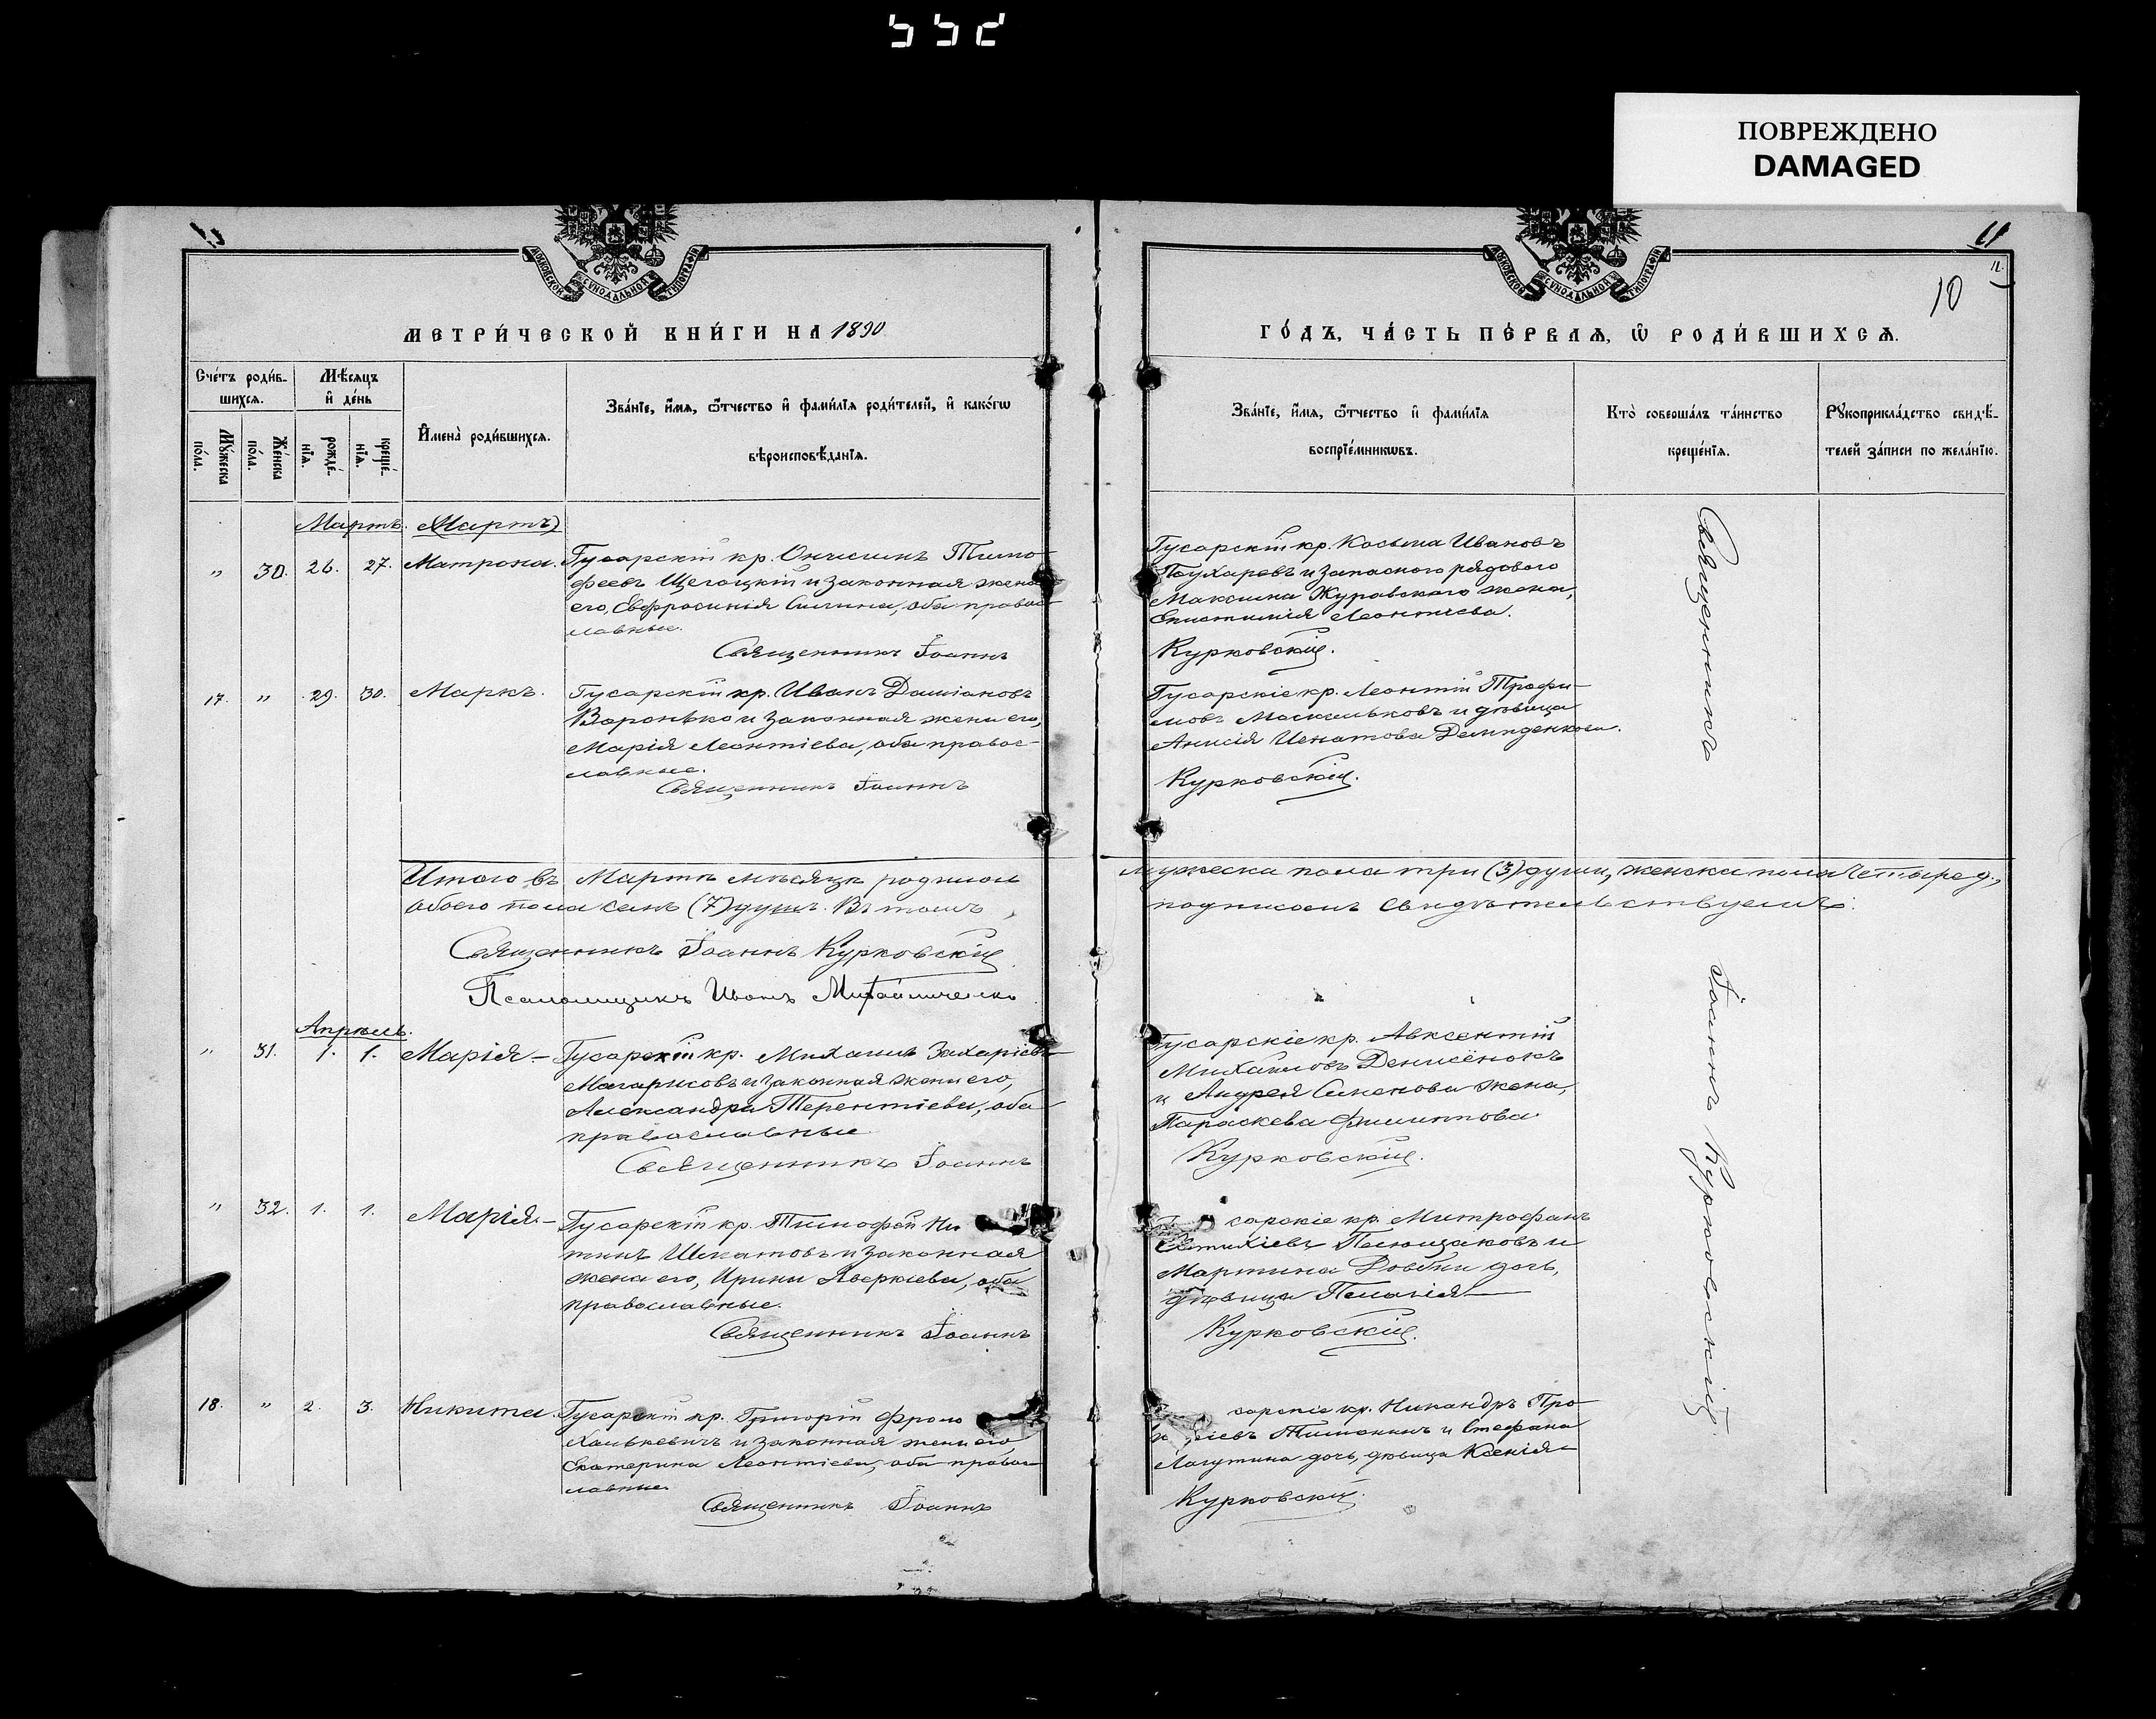 552
ПОВРЕЖДЕНО
DAMAGED
11
10
МОСКОВСКОЙ СѴНОДАЛЬНОЙ ТИПОГРАФІИ
МОСКОВСКОЙ СѴНОДАЛЬНОЙ ТИПОГРАФІИ
МЕТРИ́ЧЕСКОЙ КНИ́ГИ НА 1890
ГО́ДЪ, ЧА́СТЬ ПЕ́РВАѦ, Ѡ҆ РОДИ́ВШИХСѦ.
Сче́тъ роди́в-
шихсѧ.
Мѣ́сѧцъ
и҆ де́нь
Мꙋ́жеска
по́ла.
Же́нска
по́ла.
рожде́-
нїѧ.
креще́-
нїѧ.
И҆мена̀ роди́вшихсѧ.
Зва́нїе, и҆́мѧ, ѻ҆́тчество и҆ фами́лїѧ роди́телей, и҆ како́гѡ
вѣроисповѣ́данїѧ.
Зва́нїе, и҆́мѧ, ѻ҆́тчество и҆ фами́лїѧ
воспрїе́мникѡвъ.
Кто̀ соверша́лъ та́инство
креще́нїѧ.
Рꙋкоприкла́дство свидѣ́-
телей за́писи по жела́нїю.
Мартъ. (Мартъ)
" 30. 26. 27. Матрона. Гусарскій кр. Онисимъ Тимо-
феевъ Щегоцкій и законная жена
его, Евфросинія Силина, оба правос-
лавные.
Священникъ Іоаннъ
Гусарскій кр. Косьма Ивановъ
Поухаревъ и запасного рядового
Максима Журавскаго жена,
Епистимія Леонтіева.
Курковскій.
17. " 29. 30. Маркъ. Гусарскій кр. Иванъ Даміановъ
Воронько и законная жена его,
Марія Леонтіева, оба правос-
лавные.
Священникъ Іоаннъ
Гусарскіе кр. Леонтій Трофи-
мовъ и дѣвица
Анисія Игнатова Демиденкова.
Курковскій.
Итого въ Мартѣ мѣсяцѣ родилось
обоего пола семь (7) душъ. Въ томъ
мужеска пола три (3) души, женска пола четыре д.,
подписомъ свидѣтельствуемъ:
Священникъ Іоаннъ Курковскій
Псаломщикъ Иванъ
Апрѣль.
" 31. 1. 1. Марія – Гусарскій кр. Михаилъ Захаріевъ
Магарисовъ и законная жена его,
Александра Терентіева, оба
православные.
Священникъ Іоаннъ
Гусарскіе кр. Авксентій
Михаиловъ Денисёнокъ
и Андрея Семенова жена,
Параскева Филиппова.
Курковскій.
" 32. 1. 1. Марія. – Гусарскій кр. Тимофей Ни
тинъ Игнатовъ и законная
жена его, Ирина Аверкіева, оба
православные.
Священникъ Іоаннъ
сарскіе кр. Митрофанъ
Евтихіевъ и
Мартина Довбни дочь,
дѣвица Пелагія
Курковскій.
18. " 2. 3. Никита. Гусарскій кр. Григорій Фроло
Халькевичъ и законная жена его,
Екатерина Леонтіева, оба правос-
лавные.
Священникъ Іоаннъ
сарскіе кр. Никандръ Про-
Тимонинъ и Стефана
Лагутина дочь, дѣвица Ксенія
Курковскій.
Священникъ
Іоаннъ Курковскій.